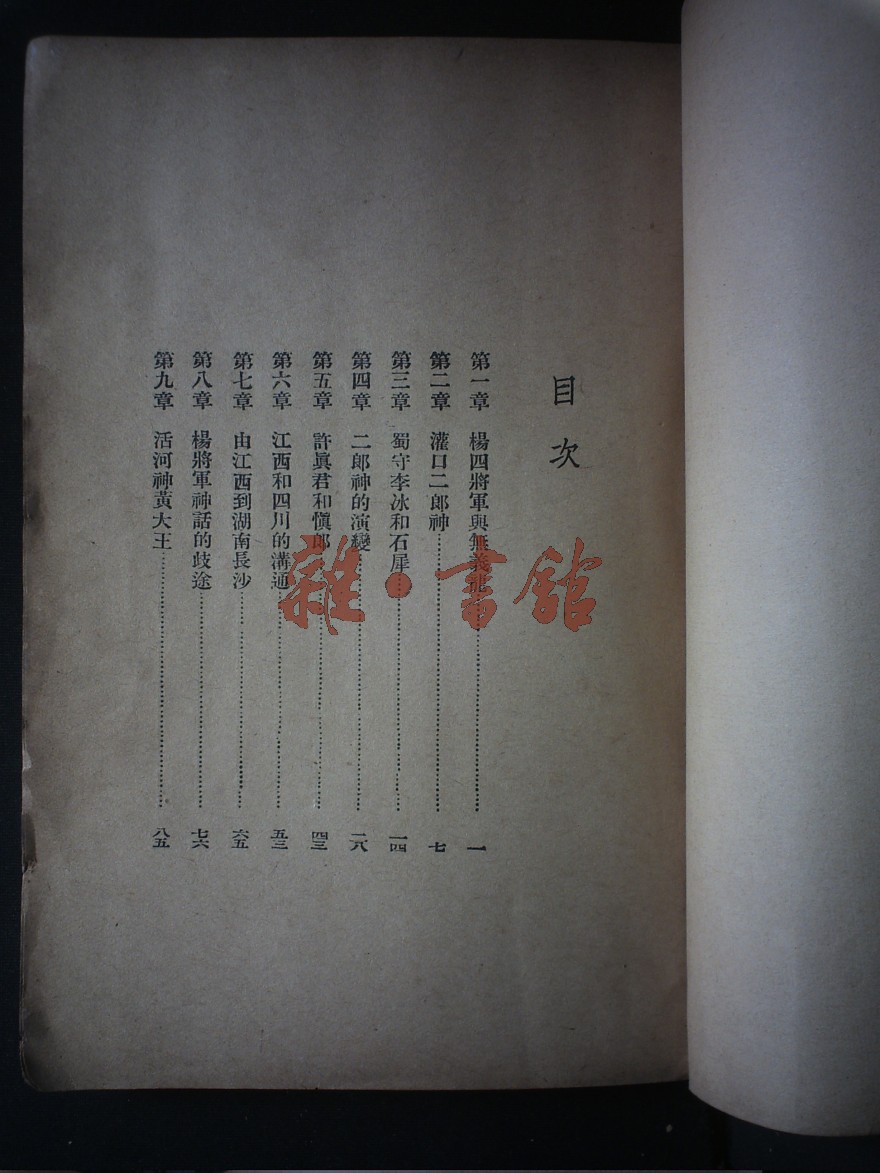 目次
第一章 楊四將軍與無義龍 一
第二章 灌口二郎神 七
第三章 蜀守李冰和石犀 一四
第四章 二郎神的演變 二八
第五章 許眞君和愼郎 四三
第六章 江西和四川的溝通 五三
第七章 由江西到湖南長沙 六五
第八章 楊將軍神話的歧途 七六
第九章 活河神黃大王 八五
雜·書舘